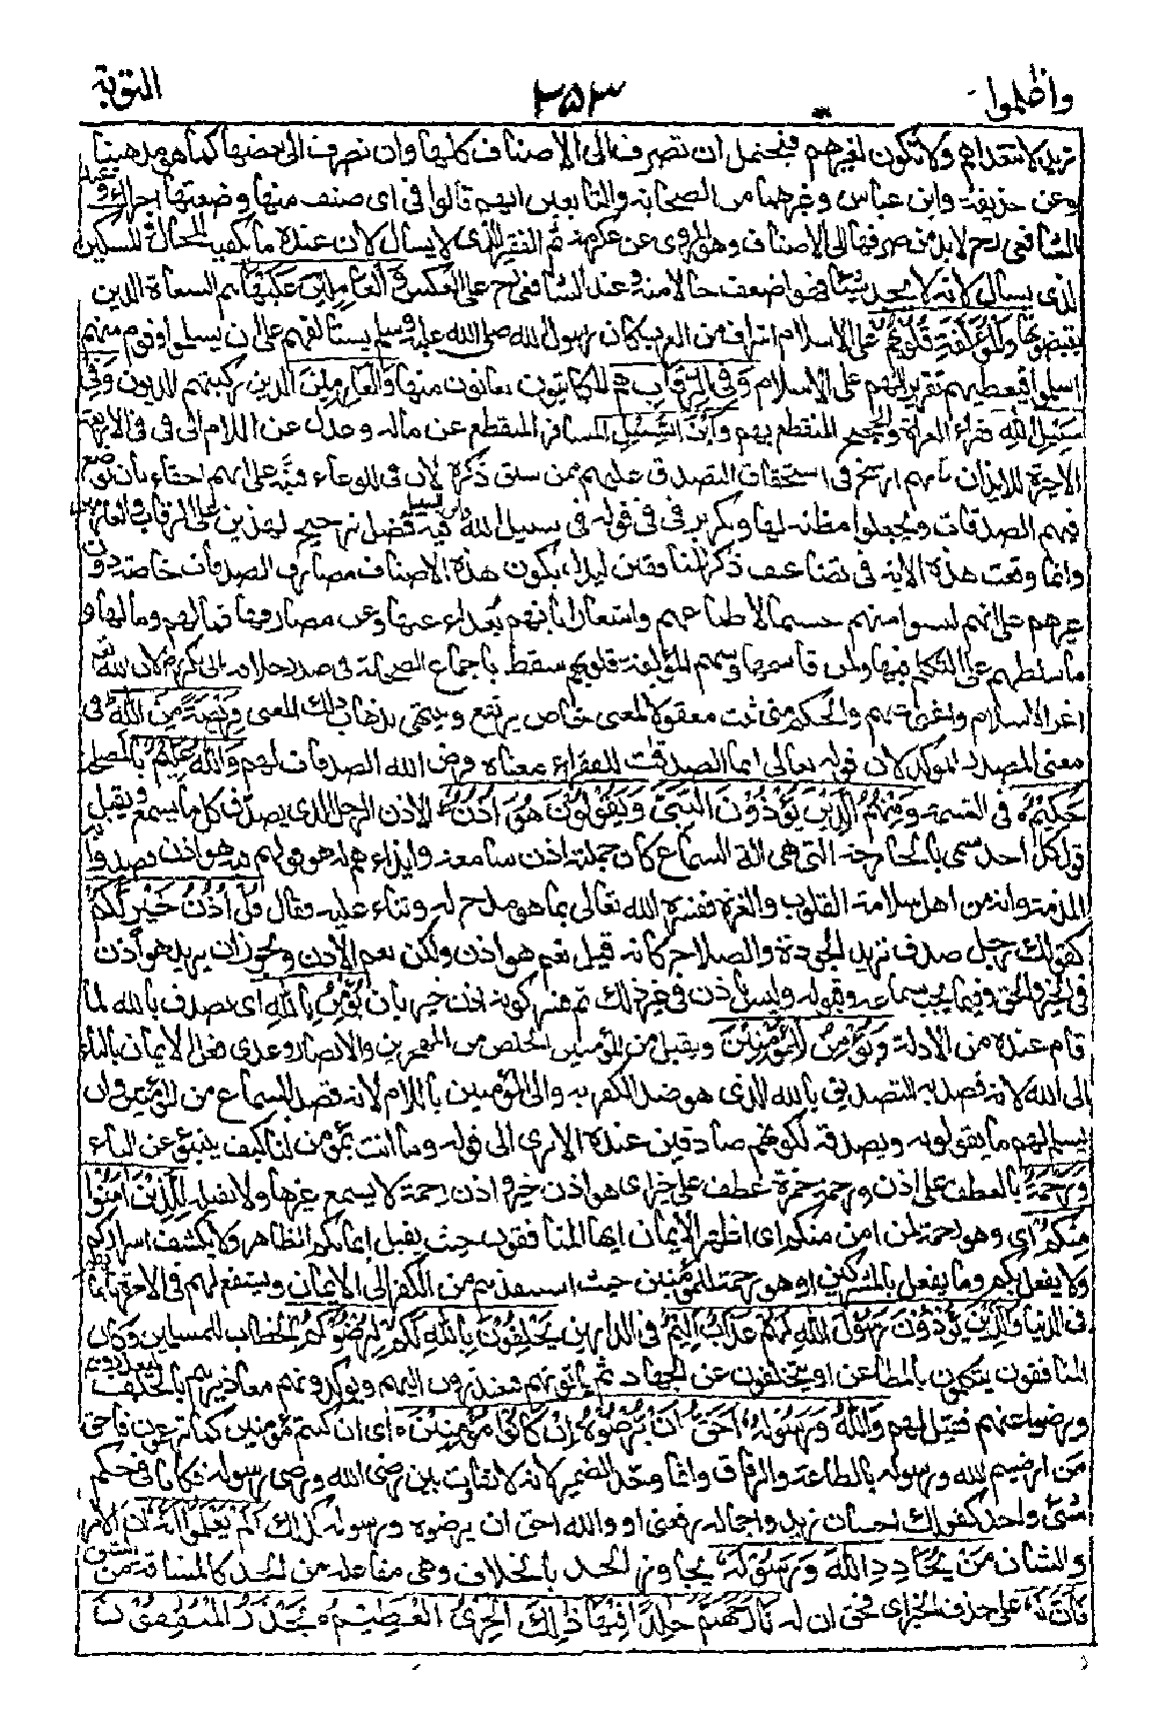 واعلموا ٣٥٣ التوبة
تريد لا تتعداهم ولا تكون لغيرهم فيحتمل ان تصرف الى الاصناف كلها وان تصرف الى بعضها كما هو مذهبنا
وعن حذيفة وابن عباس وغيرهما من الصحابة والتابعين انهم قالوا فى اى صنف منها وضعتها اجزاك وعند
الشافعى رح لابد من صرفها الى الاصناف وهو المروى عن عكرمة ثم الفقير الذى لا يسأل لان عنده ما يكفيه للحال والمسكين
الذى يسأل لانه لا يجد شيئا فهو اضعف حالا منه وعند الشافعى رح على العكس والعاملين عليها هم السعاة الذين
يقبضونها والمؤلفة قلوبهم على الاسلام اشراف من العرب كان رسول الله صلى الله عليه وسلم يستألفهم على ان يسلموا وقوم منهم
اسلموا فيعطيهم تقريرا لهم على الاسلام وفى الرقاب هم المكاتبون يعانون منها والغارمين الذين ركبتهم الديون وفى
سبيل الله فقراء الغزاة والحجيج المنقطع بهم وابن السبيل المسافر المنقطع عن ماله وعدل عن اللام الى فى فى الاربعة
الاخيرة للايذان بانهم ارسخ فى استحقاق التصدق عليهم ممن سبق ذكره لان فى للوعاء فنبه على انهم احقاء بان توضع
فيهم الصدقات ويجعلوا مظنة لها وتكرير فى فى قوله فى سبيل الله وابن السبيل فيه فضل ترجيح لهذين على الرقاب والغارمين
وانما وقعت هذه الاية فى تضاعيف ذكر المنافقين ليدل بكون هذه الاصناف مصارف الصدقات خاصة دون
غيرهم على انهم ليسوا منهم حسما لاطماعهم واشعارا بانهم بعداء عنها وعن مصارفها فما لهم وما لها و
ما سلطهم على التكلم فيها ولمن قاسمها وسهم المؤلفة قلوبهم سقط باجماع الصحابة فى صدر خلافة ابى بكر رض لان الله
اعز الاسلام واغنى عنهم والحكم متى ثبت معقولا لمعنى خاص يرتفع وينتهى بذهاب ذلك المعنى فريضة من الله فى
معنى المصدر المؤكد لان قوله تعالى انما الصدقات للفقراء معناه فرض الله الصدقات لهم والله عليم بالمصلحة
حكيم فى القسمة ومنهم الذين يؤذون النبى ويقولون هو اذن الاذن الرجل الذى يصدق كل ما يسمع ويقبل
قول كل احد سمى بالجارحة التى هى الة السماع كان جملته اذن سامعة وايذاءهم له هو قولهم فيه هو اذن وقصدوا به
المذمة وانه من اهل سلامة القلوب والغرة ففسره الله تعالى بما هو مدح له وثناء عليه فقال قل اذن خير لكم
كقولك رجل صدق تريد الجودة والصلاح كانه قيل نعم هو اذن ولكن نعم الاذن ويجوز ان يريد هو اذن
فى الخير والحق وفيما يجب سماعه وقبوله وليس باذن فى غير ذلك ثم فسر كونه اذن خير بان يؤمن بالله اى يصدق بالله لما
قام عنده من الادلة ويؤمن للمؤمنين ويقبل من المؤمنين الخلص من المهاجرين والانصار وعدى فعل الايمان بالباء
الى الله لانه قصد به التصديق بالله الذى هو ضد الكفر به والى المؤمنين باللام لانه قصد السماع من المؤمنين وان
يسلم لهم ما يقولونه ويصدقه لكونهم صادقين عنده الا ترى الى قوله وما انت بمؤمن لنا كيف ينبئ عن الباء
ورحمة بالعطف على اذن ورحمة حمزة عطف على خير اى هو اذن خير واذن رحمة لا يسمع غيرها ولا يقبله للذين امنوا
منكم اى وهو رحمة لمن امن منكم اى اظهر الايمان ايها المنافقون حيث يقبل ايمانكم الظاهر ولا يكشف اسراركم
ولا يفعل بكم ما يفعل بالمشركين او هو رحمة للمؤمنين حيث استنقذهم من الكفر الى الايمان ويستشفع لهم فى الاخرة بايمانهم
فى الدنيا والذين يؤذون رسول الله لهم عذاب اليم فى الدارين يحلفون بالله لكم ليرضوكم الخطاب للمسلمين وكان
المنافقون يتكلمون بالمطاعن او يتخلفون عن الجهاد ثم ياتونهم فيعتذرون اليهم ويؤكدون معاذيرهم بالحلف ليعذروهم
ويرضوا عنهم فقيل لهم والله ورسوله احق ان يرضوه ان كانوا مؤمنين اى ان كنتم مؤمنين كما تزعمون فاحق
من ارضيتم الله ورسوله بالطاعة والوفاق وانما وحد الضمير لانه لا تفاوت بين رضى الله ورضى رسوله فكانا فى حكم
شئ واحد كقولك احسان زيد واجماله رفعنى او والله احق ان يرضوه ورسوله كذلك الم يعلموا انه ان الامر
والشان من يحادد الله ورسوله يجاوز الحد بالخلاف وهى مفاعلة من الحد كالمشاقة من الشق
فان له على حذف الخبر اى فحق ان له نار جهنم خالدا فيها ذلك الخزى العظيم يحذر المنفقون